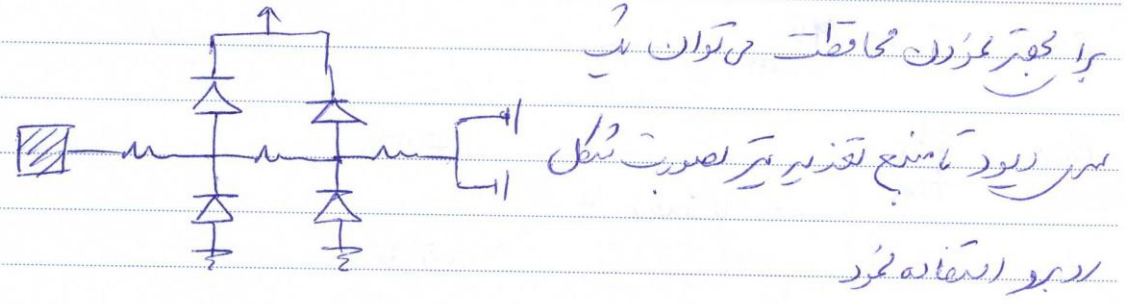 برای بهتر نمودن محافظت می توان یک
سری دیود تا منبع تغذیه نیز بصورت شکل
روبرو استفاده نمود